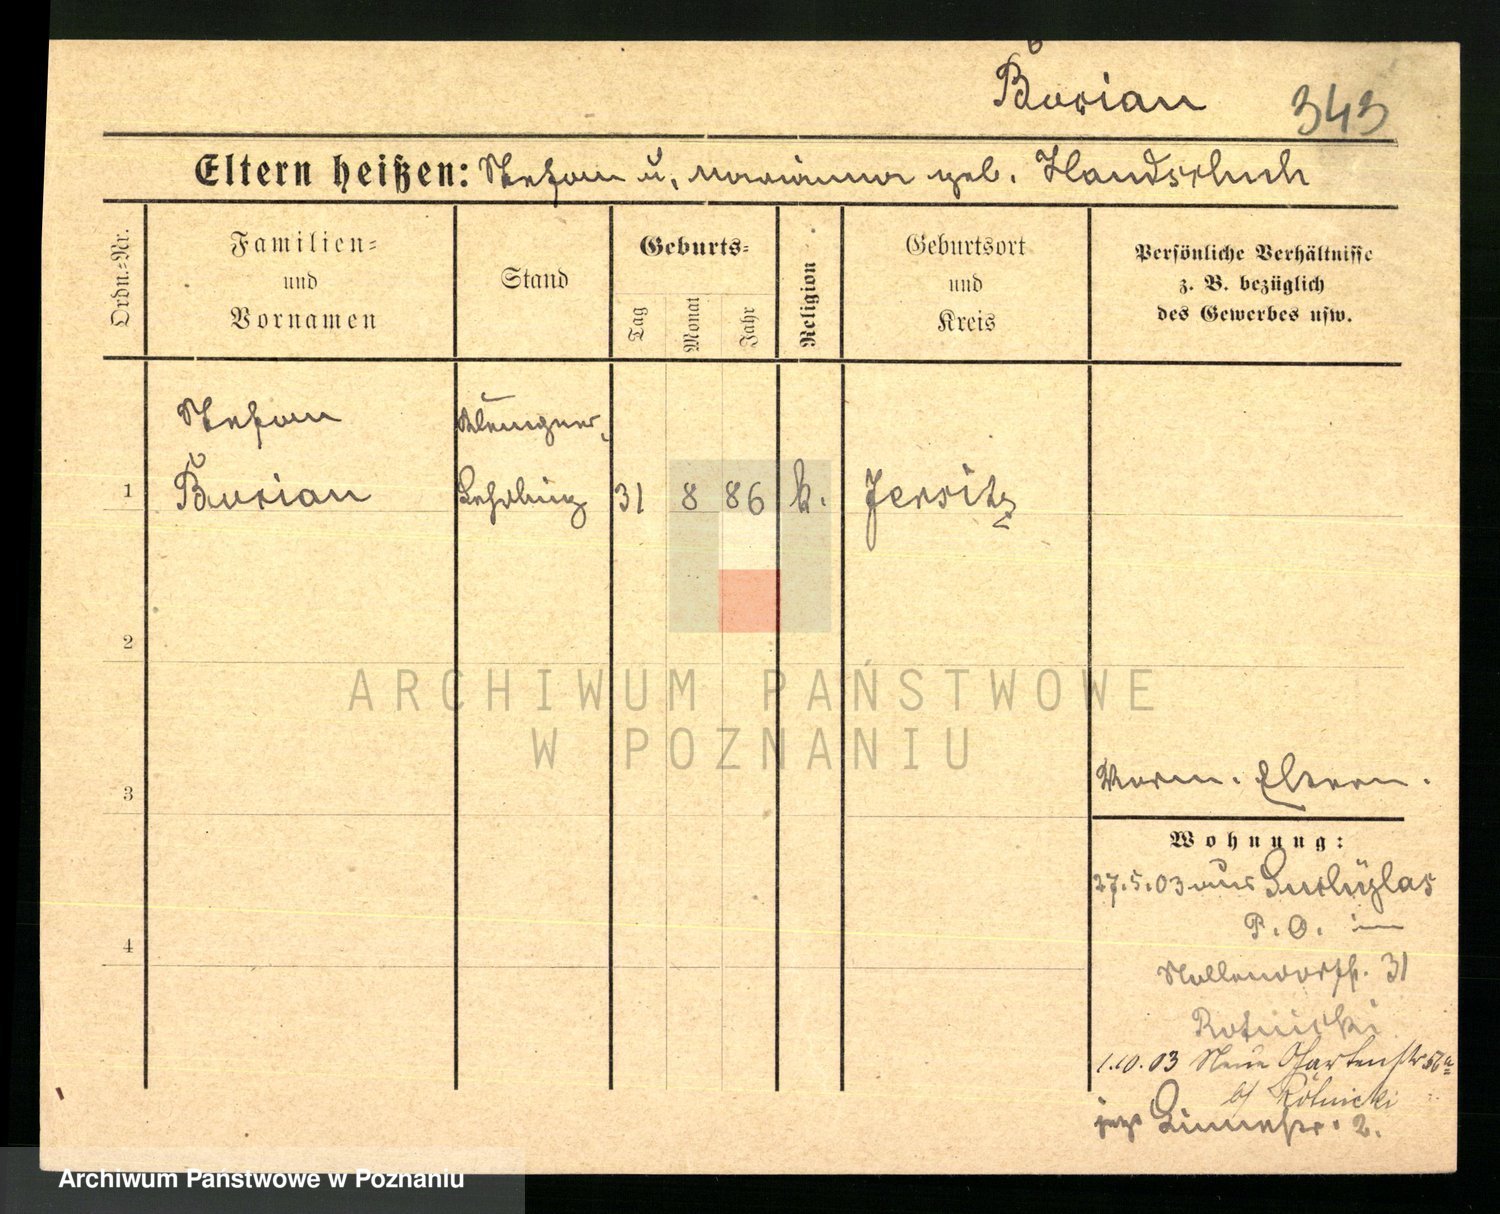 Burian 343
Eltern heißen: Stefan u. Marianna geb. Handschuh
Ordn.-Nr.
Familien-
und
Vornamen
Stand
Geburts-
Tag
Monat
Jahr
Religion
Geburtsort
und
Kreis
Persönliche Verhältnisse
z. B. bezüglich
des Gewerbes usw.
Stefan
Klempner
1 Burian Lehrling 31 8 86 k. Jersitz
2
ARCHIWUM PAŃSTWOWE
W POZNANIU
3
Eltern.
Wohnung:
27.5.03 aus
P. O. in
Nollendorfstr. 31
Rotnicki
1.10.03 Neue Gartenstr 56a
b/ Rotnicki
2.
4
Archiwum Państwowe w Poznaniu